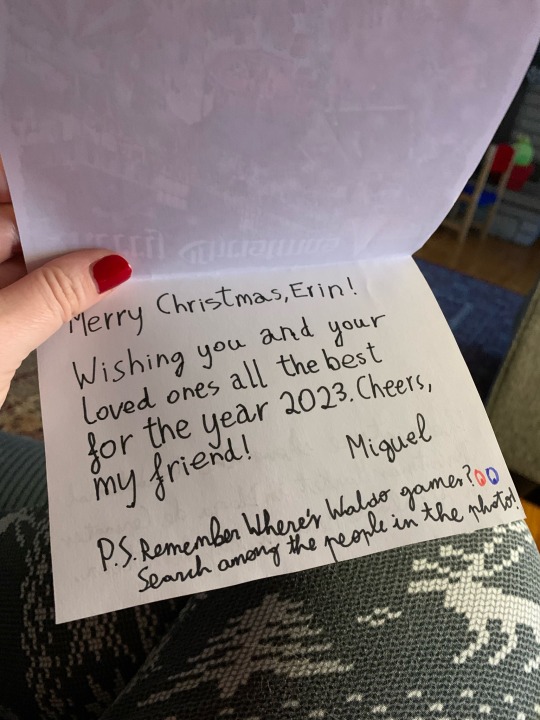 Merry Christmas, Erin!
Wishing you and your
loved ones all the best
for the year 2023. Cheers,
my friend!
Miguel
P.S. Remember Where's Waldo games?
Search among the people in the photo!